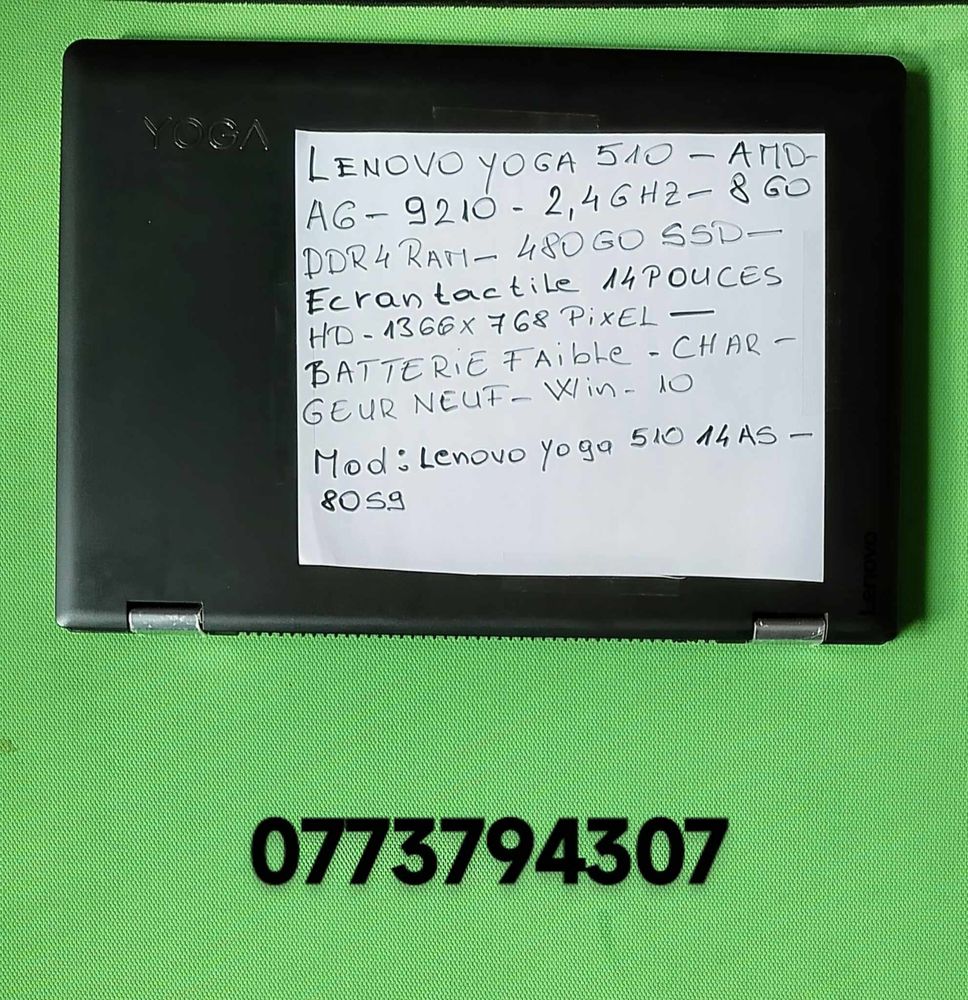 YOGA
LENOVO YOGA 510 - AMD-
A6 - 9210 - 2,4GHZ - 8 GO
DDR4 RAM - 480 GO SSD -
Ecran tactile 14 POUCES
HD - 1366 x 768 PiXEL -
BATTERiE FAible - CHAR -
GEUR NEUF - Win - 10
Mod : Lenovo Yoga 510 14AS -
80S9
Lenovo
0773794307